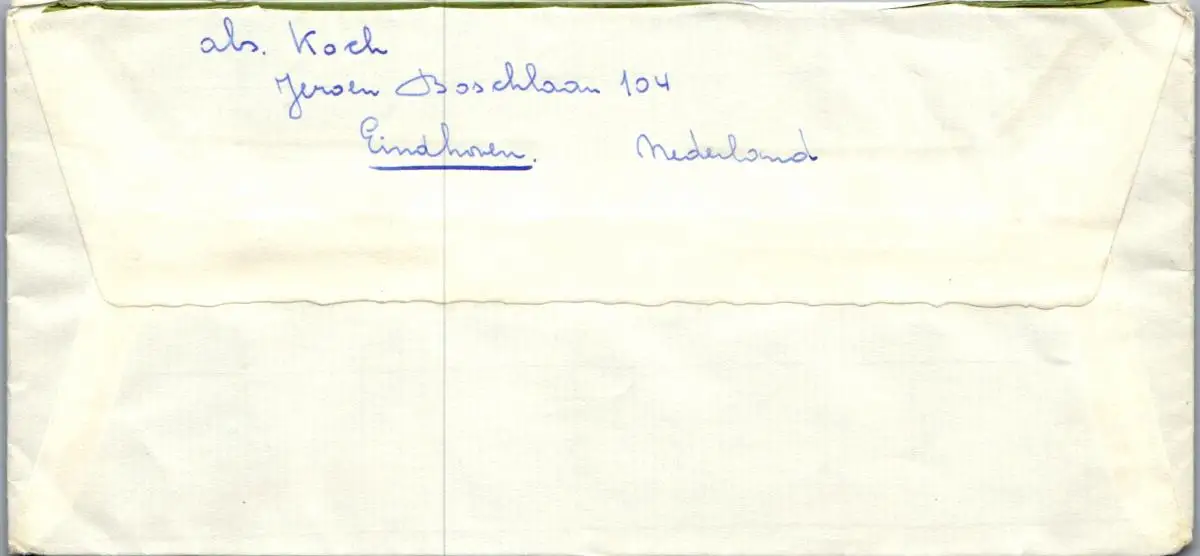 abs. Koch
Jeroen Boschlaan 104
Eindhoven. Nederland